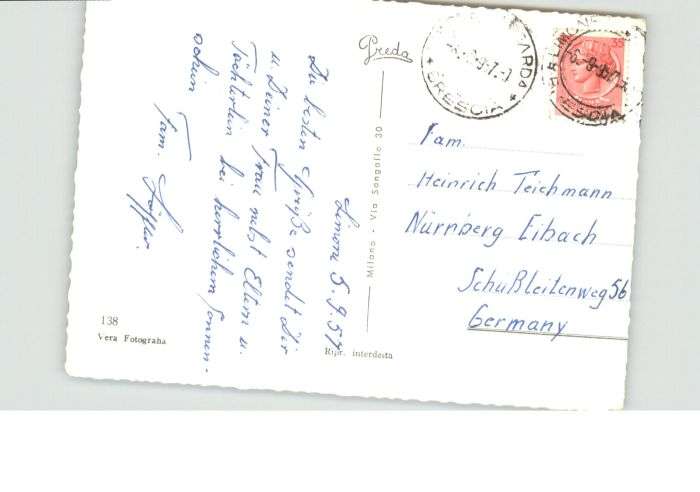 Limone 5.9.57
Die besten Grüße sendet Dir
u. Deiner Frau nebst Eltern u.
Töchterlein bei herrlichem Sonnen-
schein
Fam. Löffler
Preda
Milano - Via Sangallo 30
138
Vera Fotografia
Ripr. interdetta
GARDA
BRESCIA
LIMONE
BRESCIA
35
Fam.
Heinrich Teichmann
Nürnberg Eibach
Schußleitenweg 56
Germany